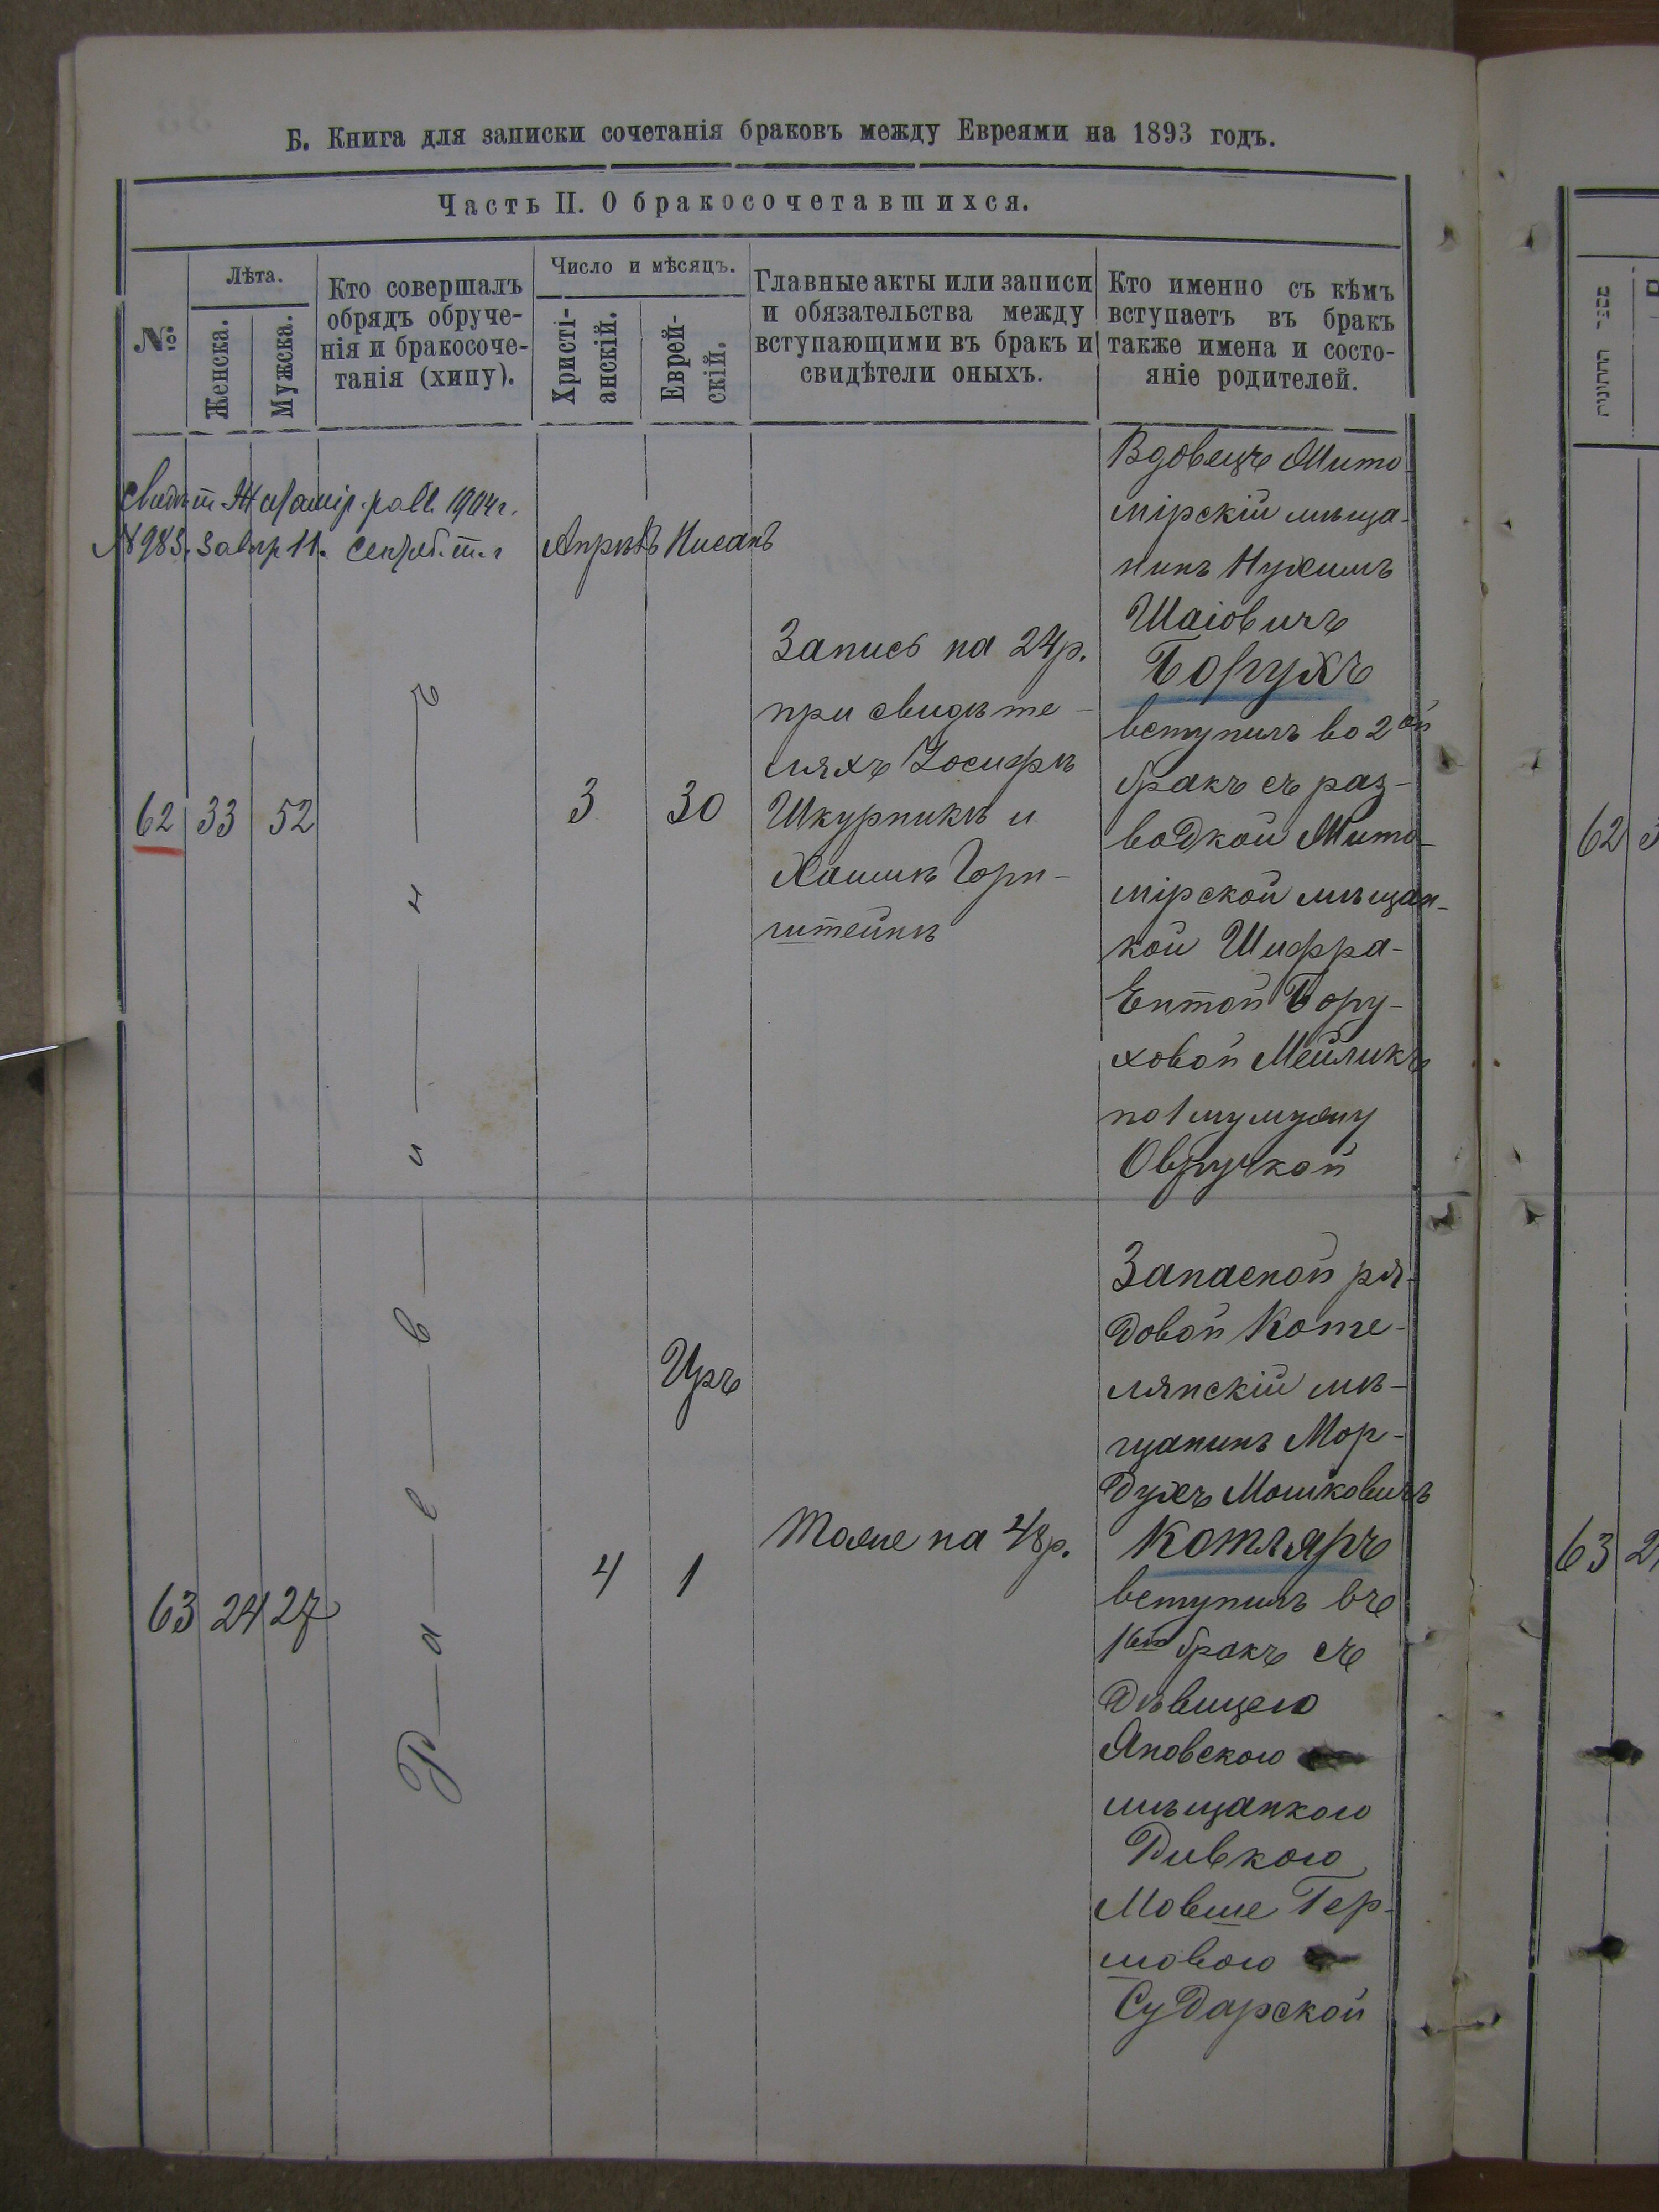 Б. Книга для записки сочетанія браковъ между Евреями на 1893 годъ.
Часть II. О бракосочетавшихся.
№
Лѣта.
Женска.
Мужска.
Кто совершалъ
обрядъ обруче-
нія и бракосоче-
танія (хипу).
Число и мѣсяцъ.
Христі-
анскій.
Еврей-
скій.
Главные акты или записи
и обязательства между
вступающими въ бракъ и
свидѣтели оныхъ.
Кто именно съ кѣмъ
вступаетъ въ бракъ
также имена и состо-
яніе родителей.
1904 г.
№ 983.
11.
Апрѣль
Нисанъ
62
33
52
Раввинъ
3
30
Запись на 24р.
при свидѣте-
ляхъ Іосифѣ
Шкурникѣ и
Хаимѣ Горн-
штейнѣ
Вдовецъ Жито-
мірскій мѣща-
нинъ Нухимъ
Шаіовичъ
Борухъ
вступилъ во 2ой
бракъ съ раз-
водкой Жито-
мірской мѣщан-
кой Шифра-
Ентой Бору-
ховой Мейликъ
по 1му мужу
Овручкой
63
24
27
4
Иръ
1
Тоже на 48р.
Запасной ря-
довой Коте-
лянскій мѣ-
щанинъ Мор-
духъ Мошковичъ
Котляръ
вступилъ въ
1ый бракъ съ
дѣвицею
Яновскою
мѣщанкою
Ривкою
Мовше Гер-
шовою
Сударской
62
63